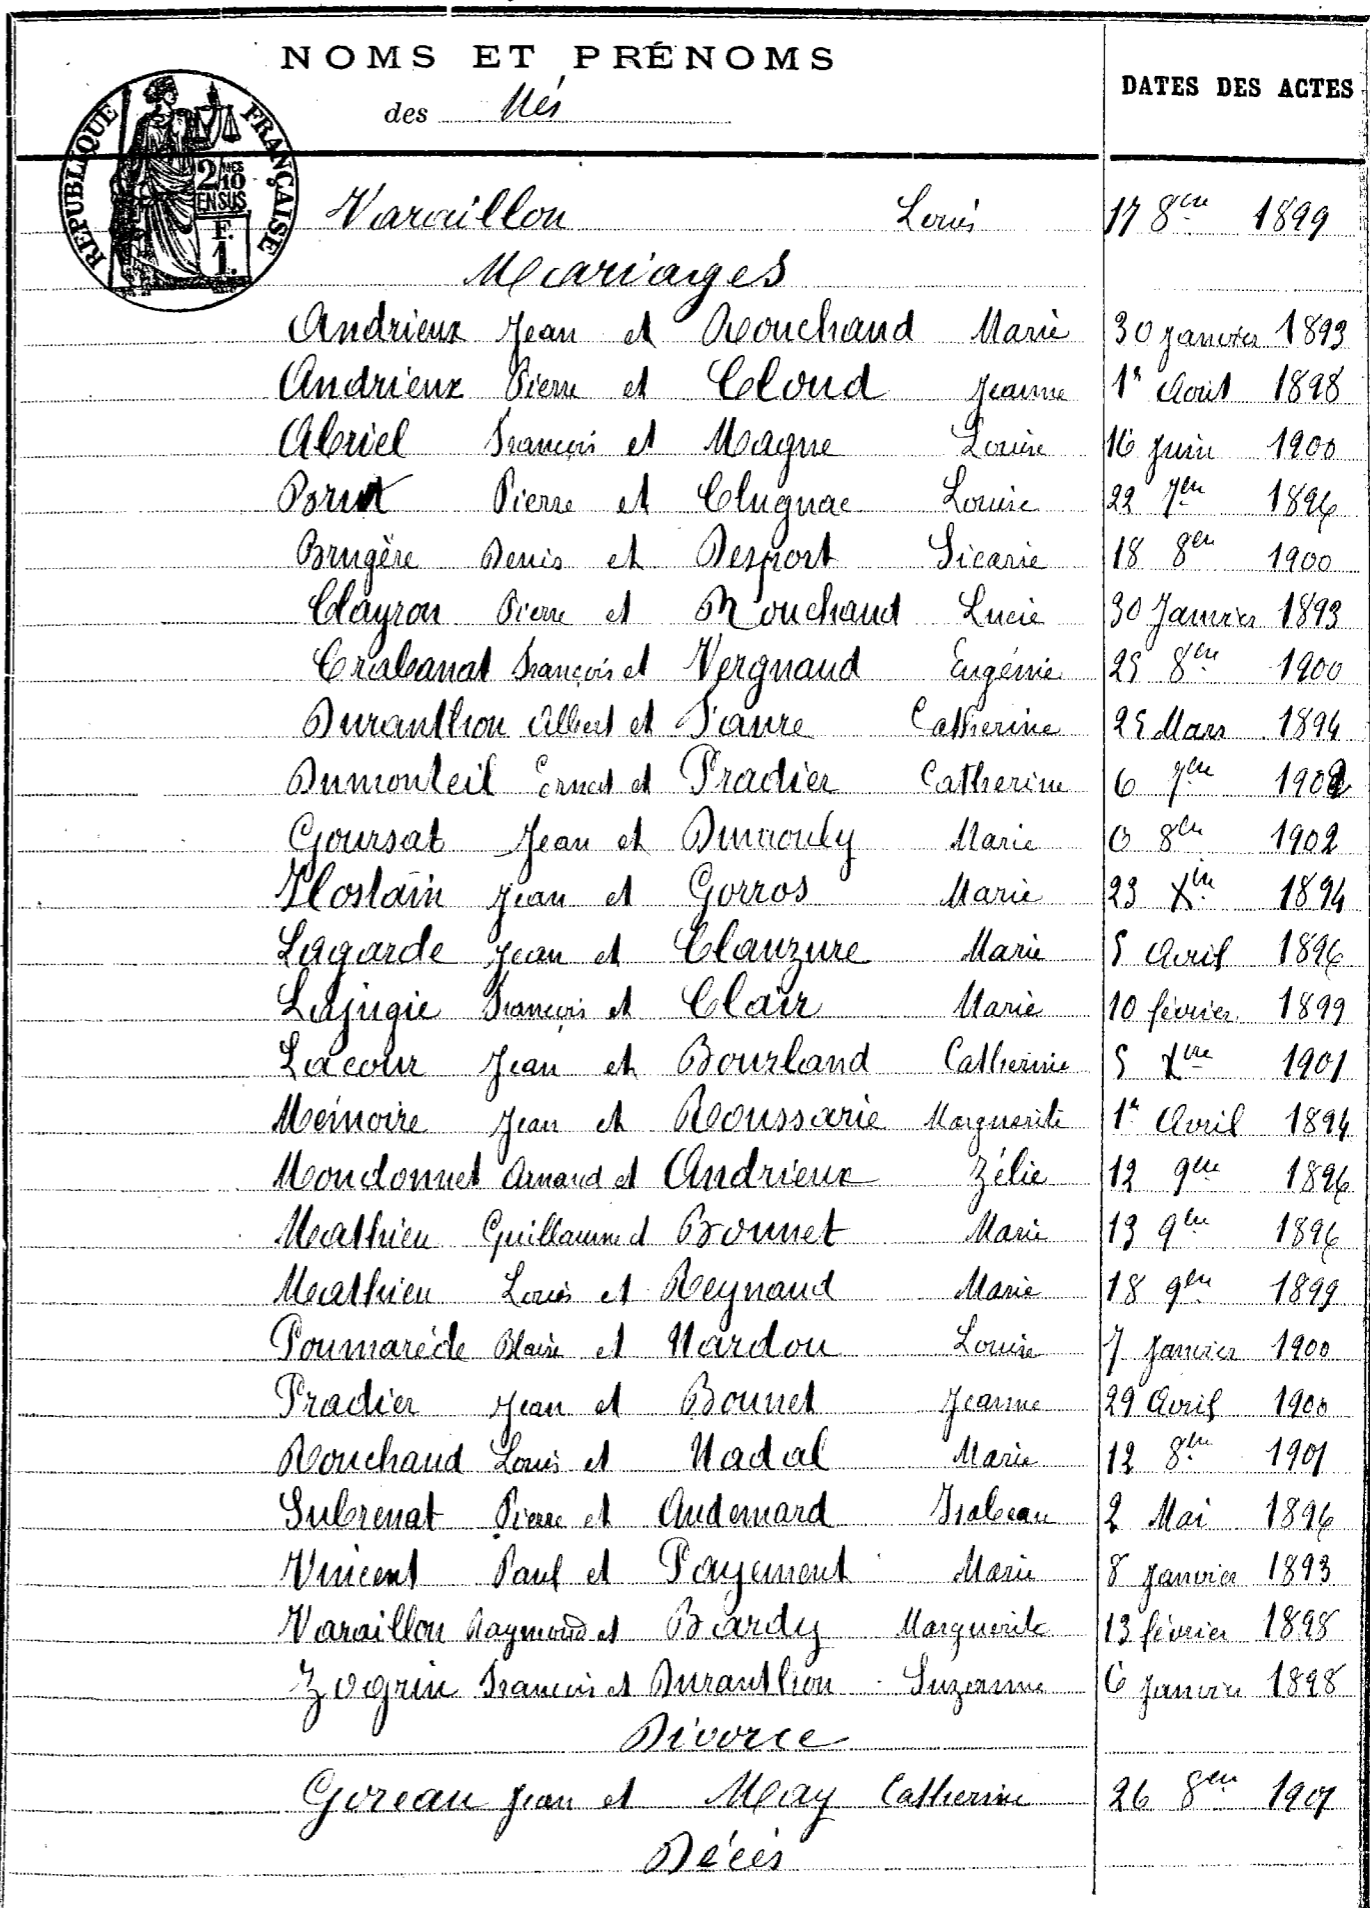 NOMS ET PRÉNOMS
des Nés
DATES DES ACTES
RÉPUBLIQUE FRANÇAISE
2/10 MES
EN SUS
F.
1.
Varaillon Louis 17 8bre 1899
Mariages
Andrieux Jean et Rouchaud Marie 30 Janvier 1893
Andrieux Pierre et Cloud Jeanne 1r Août 1898
Abriel François et Magne Louise 16 Juin 1900
Brut Pierre et Clugnac Louise 22 7bre 1896
Brugère Denis et Desport Sicarie 18 8bre 1900
Clayron Pierre et Rouchaud Lucie 30 Janvier 1893
Crabanat François et Vergnaud Eugénie 25 8bre 1900
Duranthon Albert et Faure Catherine 25 Mars 1894
Dumonteil Ernest et Pradier Catherine 6 7bre 1902
Goursat Jean et Marie 8bre 1902
Hostain Jean et Gorros Marie 23 Xbre 1894
Lagarde Jean et Clauzure Marie 5 Avril 1896
Lajugie François et Clair Marie 10 février 1899
Lacour Jean et Bourland Catherine 5 Xbre 1901
Mémoire Jean et Roussarie Marguerite 1r Avril 1894
Moudonnet Arnaud et Andrieux Zélie 12 9bre 1896
Mathieu Guillaume et Bonnet Marie 13 9bre 1896
Mathieu Louis et Reynaud Marie 18 9bre 1899
Poumarède Blaise et Nardou Louise 7 Janvier 1900
Pradier Jean et Bonnet Jeanne 29 Avril 1900
Rouchaud Louis et Nadal Marie 12 8bre 1901
Subrenat Pierre et Audemard Isabeau 2 Mai 1896
Vincent Paul et Payement Marie 8 Janvier 1893
Varaillon Raymond et Bardy Marguerite 13 février 1898
Zogrin François et Duranthon Suzanne 6 Janvier 1898
Divorce
Goreau Jean et May Catherine 26 8bre 1901
Décès